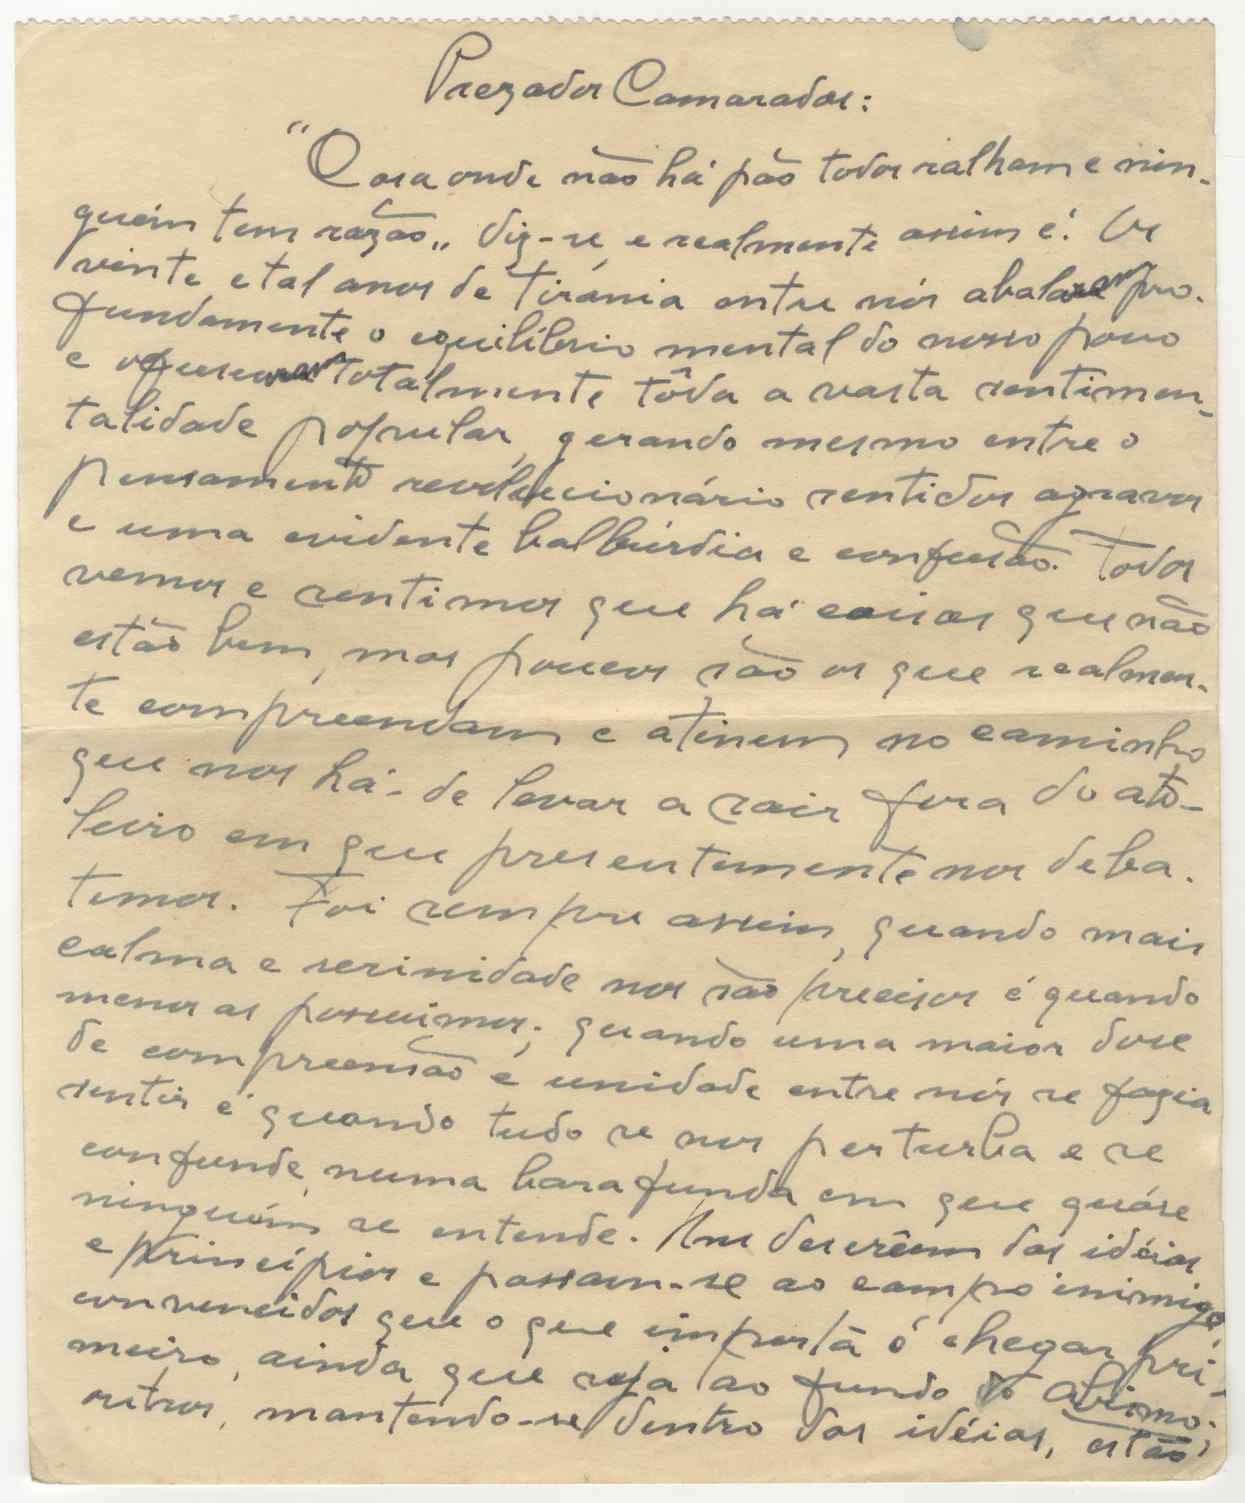 Prezados Camaradas:
"Casa onde não há pão todos ralham e nin-
guém tem razão„ diz-se, e realmente assim é. Os
vinte e tal anos de tirânia entre nós abalaram pro-
fundamente o equilíbrio mental do nosso povo
e ofuscaram totalmente tôda a vasta sentimen-
talidade popular, gerando mesmo entre o
pensamento revolucionário sentidos agravos
e uma evidente balbúrdia e confusão. Todos
vemos e sentimos que há coisas que não
estão bem, mas poucos são os que realmen-
te compreendam e atinem no caminho
que nos há-de levar a sair fora do ato-
leiro em que presentemente nos deba-
temos. Foi sempre assim, quando mais
calma e serinidade nos são precisos é quando
menos as possuimos; quando uma maior dose
de compreensão e unidade entre nós se fazia
sentir é quando tudo se nos perturba e se
confunde, numa barafunda em que quáse
ninguém se entende. Uns descrêem das idéias
e princípios e passam-se ao campo inimigo,
convencidos que o que importa é chegar pri-
meiro, ainda que seja ao fundo do abismo;
outros, mantendo-se dentro das idéias, estão